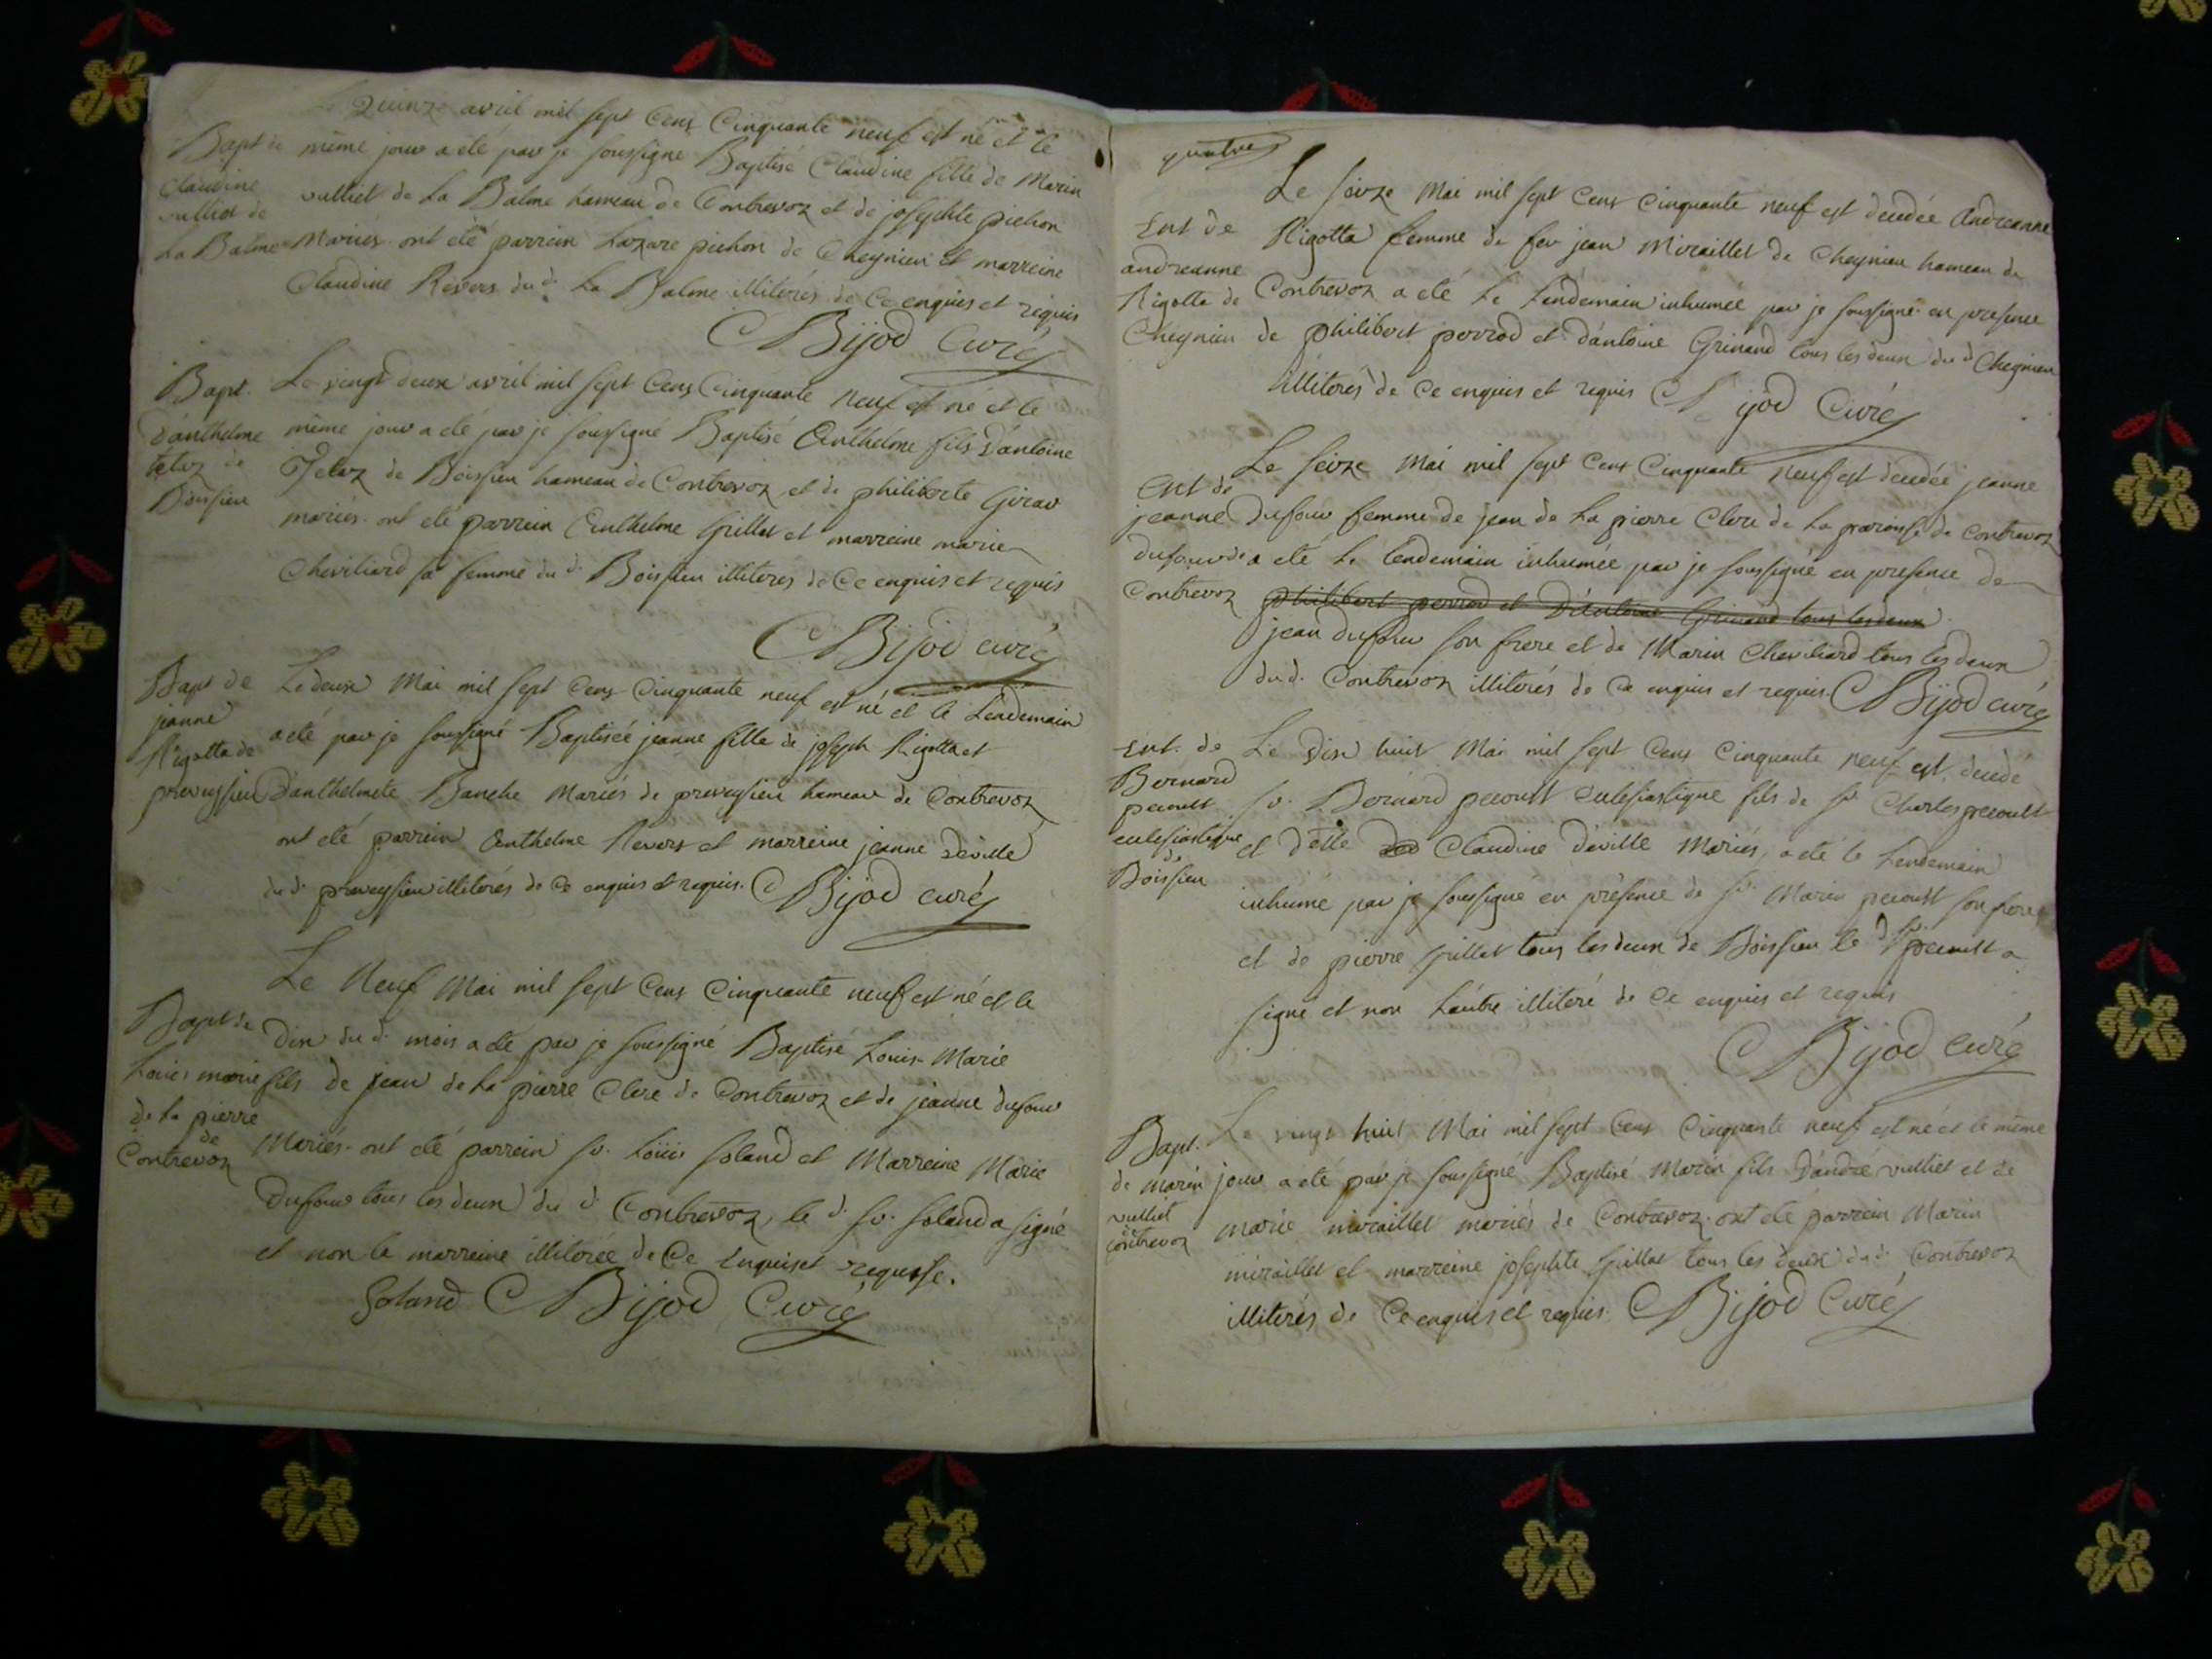 Le Quinze avril mil sept Cens Cinquante neuf est né et le
Bapt de même jour a eté par je soussigné Baptisé Claudine fille de Marin
Claudine
vulliet de vulliet de La Balme hameau de Contrevoz et de josephte pichon
La Balme Mariés. ont eté parrein Lazare pichon de Cheynieu et marreine
Claudine Revers du d. La Balme illiterés de Ce enquis et requis
Bijod Curé
Bapt. Le vingt deux avril mil sept Cens Cinquante neuf est né et le
D'anthelme même jour a eté par je soussigné Baptisé Anthelme fils D'antoine
tetaz de Tetaz de Boissieu hameau de Contrevoz et de philiberte Girav
Boissieu mariés. ont eté parrein Anthelme Grillat et marreine marie
Cheviliard sa femme du d. Boissieu illiterés de Ce enquis et requis
Bijod curé
Bapt de Le deux Mai mil sept Cens Cinquante neuf est né et le Lendemain
jeanne
Rigotta de a eté par je soussigné Baptiseé jeanne fille de joseph Rigotta et
preveyssieu D'anthelmete Banche Mariés de preveysieu hameau de Contrevoz
ont eté parrein Anthelme Revers et marreine jeanne Deville
du d. preveyssieu illiterés de Ce enquis et requis. Bijod curé
Le Neuf Mai mil sept Cens Cinquante neuf est né et le
Bapt de Dix du d. mois a eté par je soussigné Baptisé Louis Marie
Louis marie fils de jean de La pierre Clerc de Contrevoz et de jeanne dufour
de La pierre
de
Contrevoz Mariés. ont eté parrein sr. Loüis Soland et Marreine Marie
Dufour tous les deux du d. Contrevoz, le d. sr. Soland a signé
et non la marreine illiterée de Ce Enquise et requise.
Soland Bijod Curé
quatre
Le seize Mai mil sept Cens Cinquante neuf est decedée Andréanne
Ent de Rigotta femme de feu jean Miraillet de Cheynieu hameau de
andreanne
Rigotta de Contrevoz a eté Le Lendemain inhumée par je soussigné en presence
Cheynieu de philibert perrod et d'antoine Grinand tous les deux du d. Cheynieu
illiterés de Ce enquis et requis Bijod Curé
Le seize Mai mil sept Cens Cinquante neuf est decedée jeanne
Ent de
jeanne Dufour femme de jean de La pierre Clerc de La paroisse de Contrevoz
dufour de a eté Le Lendemain inhumée par je soussigné en presence de
Contrevoz philibert perrod et D'antoine Grinand tous les deux
jean Dufour son frere et de Marin Cheviliard tous les deux
du d. Contrevoz illiterés de Ce enquis et requis. Bijod curé
Ent. de Le Dix huit Mai mil sept Cens Cinquante neuf est decedé
Bernard
pecoult sr. Bernard pecoult eclesiastique fils de sr. Charles pecoult
eclesiastique et d'elle Claudine Déville Mariés, a eté le Lendemain
de
Boissieu inhumé par je soussigné en présence de sr. Marin pecoult son frere
et de pierre Grillat tous les deux de Boissieu le d. sr. pecoult a
signé et non L'autre illiteré de Ce enquis et requis
Bijod curé
Bapt. Le vingt huit Mai mil sept Cens Cinquante neuf est né et le même
de Marin jour a eté par je soussigné Baptisé Marin fils D'andré vulliet et de
vulliet
de
Contrevoz Marie miraillet mariés de Contrevoz. ont eté parrein Marin
miraillet et marreine josephte Grillat tous les deux du d. Contrevoz
illiterés de Ce enquis et requis. Bijod Curé